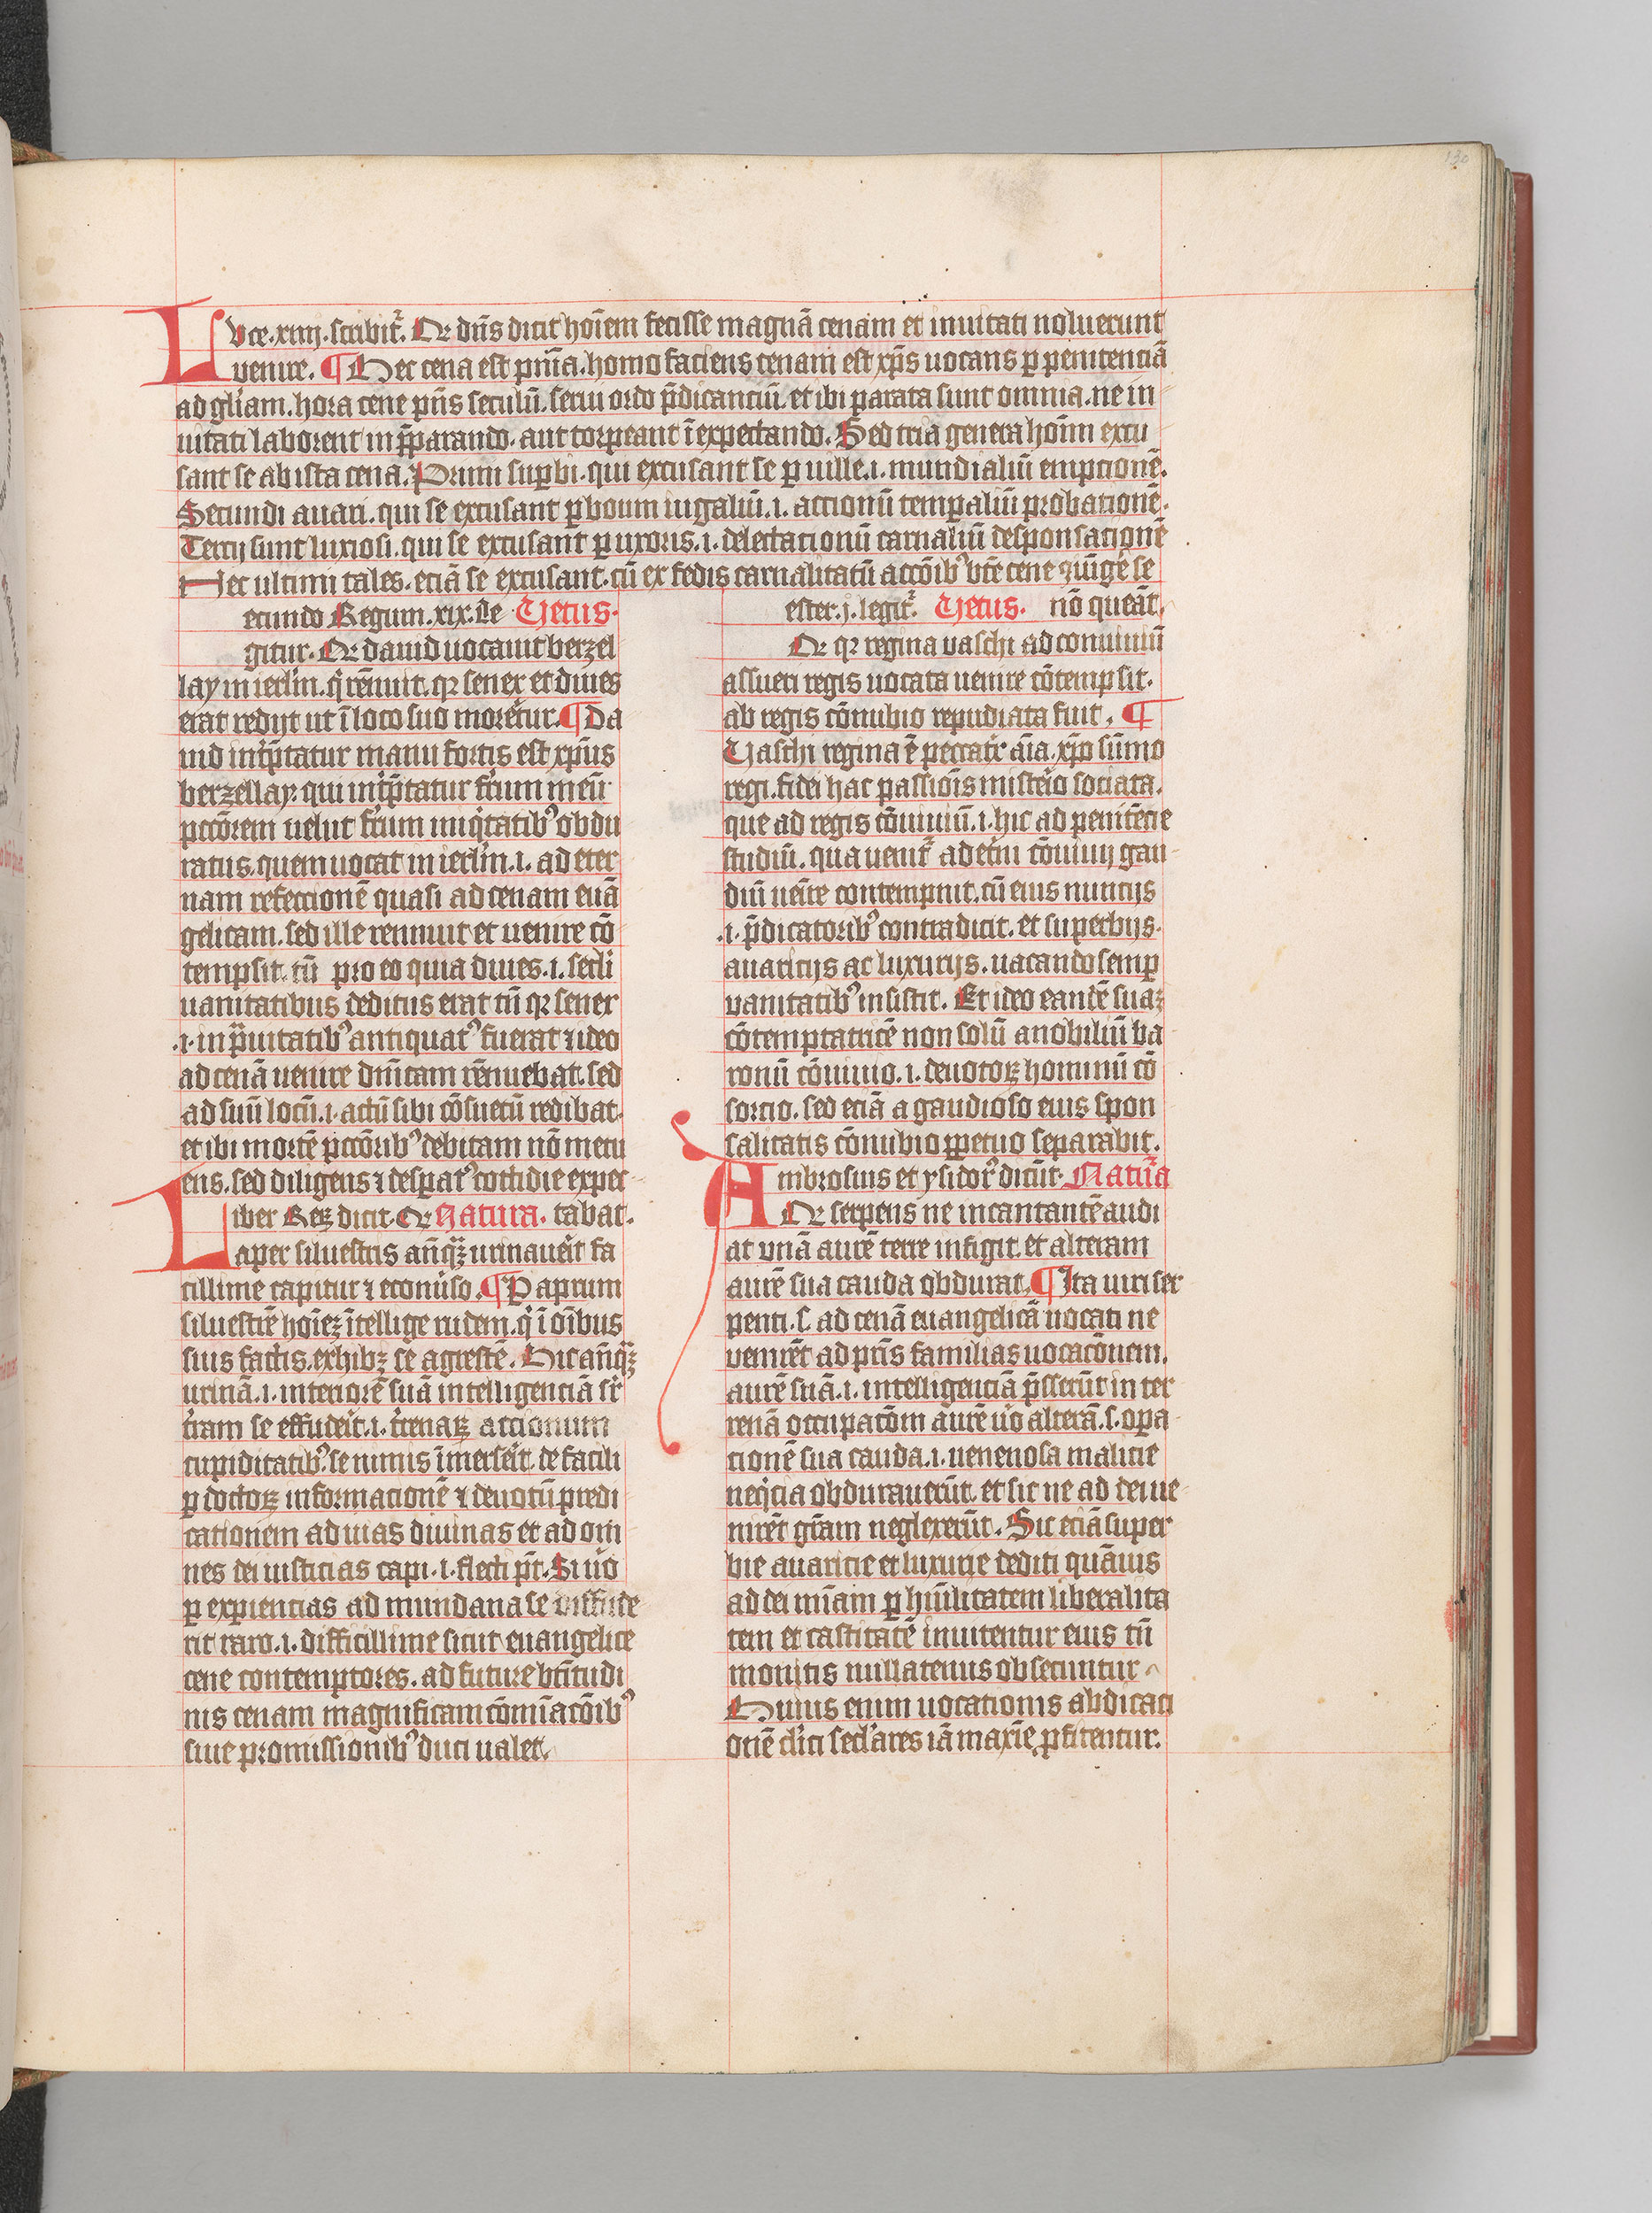 130
Luce .xiiii. scribit᷑. Qd dn̄s dicit hoīem fecisse magnā cenam et inuitati noluerunt
venire. ¶ Hec cena est pn̄ia. homo faciens cenam est xp̄s uocans ꝑ penitenciā
ad gl̄iam. hora cene pn̄s seculū. serui ordo p̄dicanciū. et ibi ꝑata sunt omnia. ne in
uitati laborent in p̄ꝑarando. aut torpeant ī expectando. Sed tria genera hoīm excu
sant se ab ista cena. Primi suꝑbi. qui excusant se ꝑ uille .i. mundialiū empcionē.
Secundi auari. qui se excusant ꝑ boum iugaliū .i. accionū temꝑaliū probacionē.
Tercij sunt luxiosi. qui se excusant ꝑ uxoris .i. delectacionū carnaliū desponsacionē
Hec ultimi tales. eciā se excusant. cū ex fedis carnalitatū accōib᷒ bt̄e cene ꝯiūge᷑ se
ecundo Regum .xix. le Vetus.
gitur. Qd dauid uocauit berzel
lay in ierl̄m. q̇ rēnuit. qꝛ senex et diues
erat redijt ut ī loco suo more᷑tur. ¶ Da
uid int̄p̄tatur manu fortis est xp̄us
berzellay. qui int̄p̄tatur ferrum meū
pctōrem uelut ferrum iniq̇tatib᷒ obdu
ratus. quem uocat in ierl̄m .i. ad eter
nam refectionē quasi ad cenam euā
gelicam. sed ille rennuit et uenire cō
tempsit. tū pro eo quia diues .i. secl̄i
uanitatibus deditus erat tū qꝛ senex
.i. in p̄uitatib᷒ antiquat᷒ fuerat ⁊ ideo
ad cenā uenire dn̄icam rēnuebat. sed
ad suū locū .i. actū sibi cōsuetū redibat.
et ibi mortē pctōrib᷒ debitam nō metu
ens. sed diligens ⁊ despat᷒ cottidie expec
Liber Reꝝ dicit. Qd Natura. tabat.
aper siluestris anq̄ꝫ urinauerit fa
cillime capitur ⁊ econuerso. ¶ P aprum
siluestrē hoīeꝫ ītellige rudem. q̇ ī oībus
suis factis. exhibꝫ se agrestē. Hic anq̄ꝫ
urinā .i. interiorē suā intelligenciā sr̄
t̄ram se effuderit .i. t̄renaꝝ accionum
cupiditatib᷒. se nimis īmerserit. de facili
ꝑ doctoꝝ informacionē ⁊ deuotū predi
cationem ad uias diuinas et ad om
nes dei iusticias capi .i. flecti pt̄. Si uo
ꝑ expiencias ad mundana se diffude
rit raro .i. difficillime sicut euangelice
cene contemptores. ad future bt̄itudi
nis cenam magnificam cōmiacōib᷒
siue promissionib᷒ duci ualet.
ester .j. legit᷑. Vetus. nō queāt.
Qd qꝛ regina vaschi ad conuiuiū
assueri regis uocata uenire cōtempsit.
ab regis cōnubio repudiata fuit. ¶
Vaschi regina ē peccatr̄ aīa. xp̄o sūmo
regi. fidei hac passiōis misterio sociata.
que ad regis cōuiuiū .i. hic ad penitēcie
studiū. qua uenit᷑ ad et̄ni cōuiuij gau
diū uēire contempnit. cū eius nuncijs
.i. p̄dicatorib᷒ contradicit. et superbijs.
auaricijs ac luxurijs. uacando semꝑ
vanitatib᷒ insistit. Et ideo eandē suaꝫ
cōtemptatricē non solū a nobiliū ba
ronū cōuiuio .i. deuotoꝝ hominū cō
sorcio. sed eciā a gaudioso eius spon
salitatis cōnubio ꝑpetuo separabit.
Ambrosius et ysidor᷑ dicūt. Natura
Qd serpens ne incantantē audi
at vnā aurē terre infigit. et alteram
aurē sua cauda obdurat. ¶ Ita uiri ser
penti. s̄. ad cenā euangelicā uocati ne
venirēt ad pr̄is familias uocacōnem.
aurē suā .i. intelligenciā p̄sserūt in ter
renā occupacōm aurē uo alterā. s. oꝑa
cionē sua cauda .i. uenenosa malicie
neq̇cia obdurauerūt. et sic ne ad dei ue
nirēt gr̄am neglexerūt. Sic eciā super
bie auaricie et luxurie dediti quāuis
ad dei mīam ꝑ hūilitatem liberalita
tem et castitatē inuitentur eius tn̄
monitis nullatenus obsecuntur
Huius enim uocationis abdicaci
onē clīci secl̄ares iā maxīe ꝓfitentur.